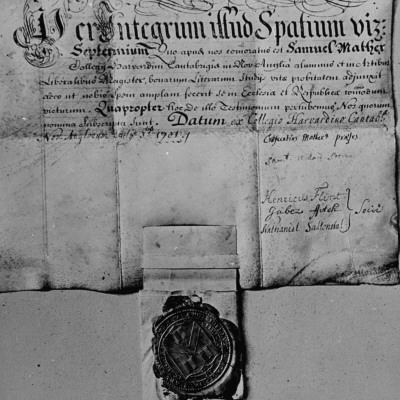 Per Integrum illud Spatium viz:
Septennium quo apud nos comoratus est Samuel Mather
Collegij Harvardini Cantabrigiæ in Nov-Angliâ alumnus et Artibus
Liberalibus Magister, bonarum Literarum Studijs vitæ probitatem adjunxit
adeo ut nobis spem amplam fecerit se in Ecclesiæ et Reipublicæ comodum
victurum. Quapropter hoc de illo Testimonium perhibemus Nos quorum
nomina subscripta sunt. Datum ex Collegio Harvardino Cantab:
Nov
Mather præses
Henricus Flint
Jabez Fitch
Nathaniel Saltonstal
Socij